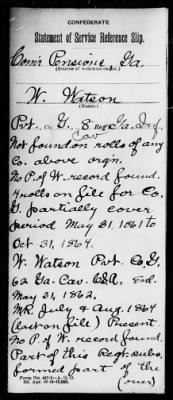 CONFEDERATE
Statement of Service Reference Slip.
Com'r Pensions Ga.
(Source of communication.)
W. Watson
(Name.)
Pvt. Co. G. 8 Reg Ga. Inf.
Cav
Not found on rolls of any
Co. above orgn.
No P. of W. record found.
4 rolls on file for Co.
G. partially cover
period May 31, 1861 to
Oct 31, 1864.
W. Watson Pvt. Co G
62 Ga. Cav. CSA. Enl.
May 31, 1862.
MR July & Aug. 1864
(last on file) Present.
No P. of W. record found.
Part of this Regt. subs.
formed part of the
(over)